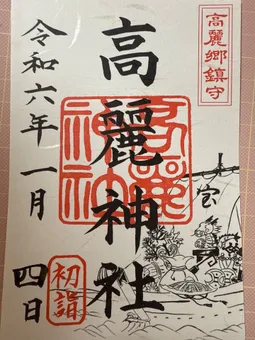 高麗郷鎮守
高麗神社
高麗神社
令和六年一月
四日
初詣
宝